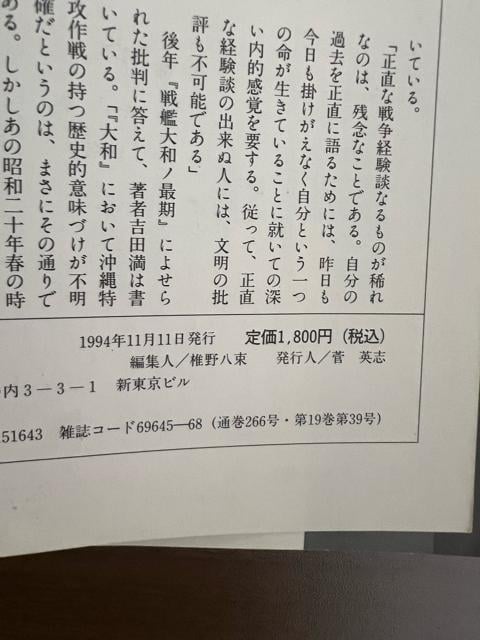 いている。
「正直な戦争経験談なるものが稀れ
なのは、残念なことである。自分の
過去を正直に語るためには、昨日も
今日も掛けがえなく自分という一つ
の命が生きていることに就いての深
い内的感覚を要する。従って、正直
な経験談の出来ぬ人には、文明の批
評も不可能である」
後年『戦艦大和ノ最期』によせら
れた批判に答えて、著者吉田満は書
いている。「『大和』において沖縄特
攻作戦の持つ歴史的意味づけが不明
確だというのは、まさにその通りで
ある。しかしあの昭和二十年春の時
1994年11月11日発行 定価1,800円（税込）
編集人／椎野八束 発行人／菅 英志
内3－3－1 新東京ビル
51643 雑誌コード69645―68（通巻266号・第19巻第39号）